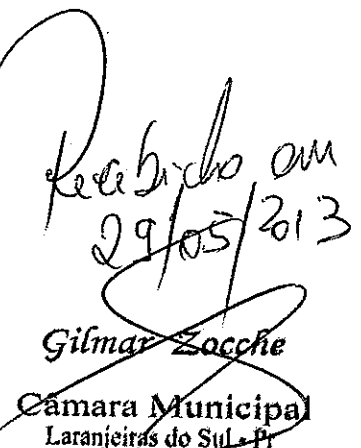 Recebido em
29/05/2013
Gilmar Zocche
Câmara Municipal
Laranjeiras do Sul - Pr